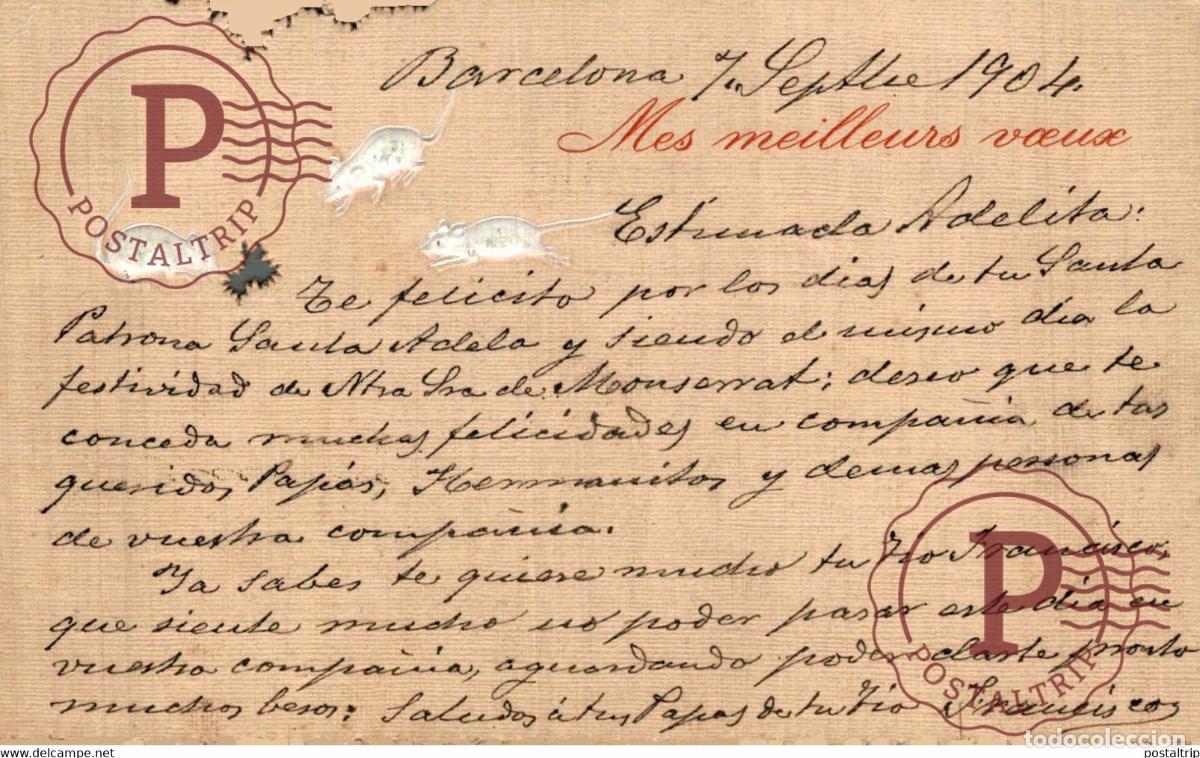 Barcelona 7. Septbre 1904.
Mes meilleurs vœux
Estimada Adelita:
Te felicito por los dias de tu Santa
Patrona Santa Adela y siendo el mismo dia la
festividad de Ntra Sra de Monserrat; deseo que te
conceda muchas felicidades en compañia de tus
queridos Papás, Hermanitos y demas personas
de vuestra compañia.
Ya sabes te quiere mucho tu Tio Francisco,
que siente mucho no poder pasar este dia en
vuestra compañia, aguardando poder darte pronto
muchos besos: Saludos á tus Papas de tu Tio Francisco
P
POSTALTRIP
P
POSTALTRIP
todocoleccion.net
www.delcampe.net
postaltrip